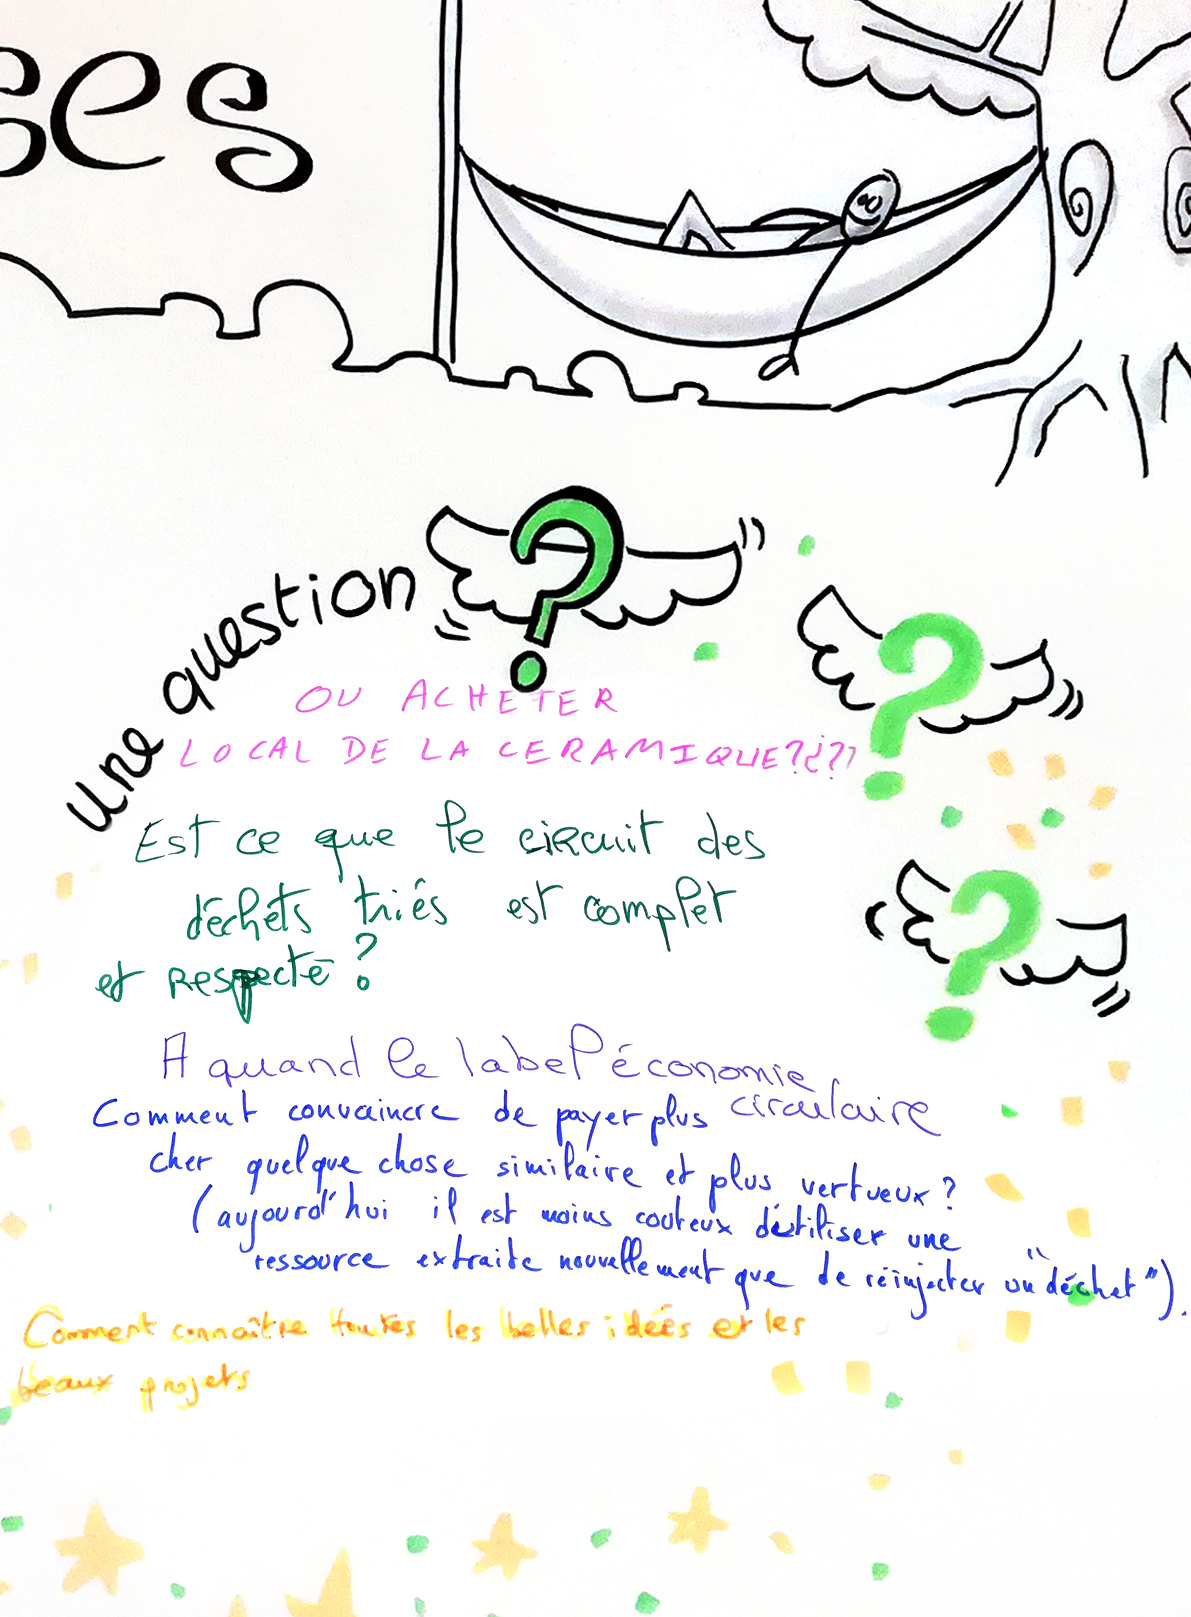 ses
une question ?
OU ACHETER
LOCAL DE LA CERAMIQUE?¿??
Est ce que le circuit des
déchets triés est complet
et respecté ?
A quand le label économie
circulaire
Comment convaincre de payer plus
cher quelque chose similaire et plus vertueux ?
(aujourd'hui il est moins couteux d'utiliser une
ressource extraite nouvellement que de réinjecter un "déchet").
Comment connaître toutes les belles idées et les
beaux projets